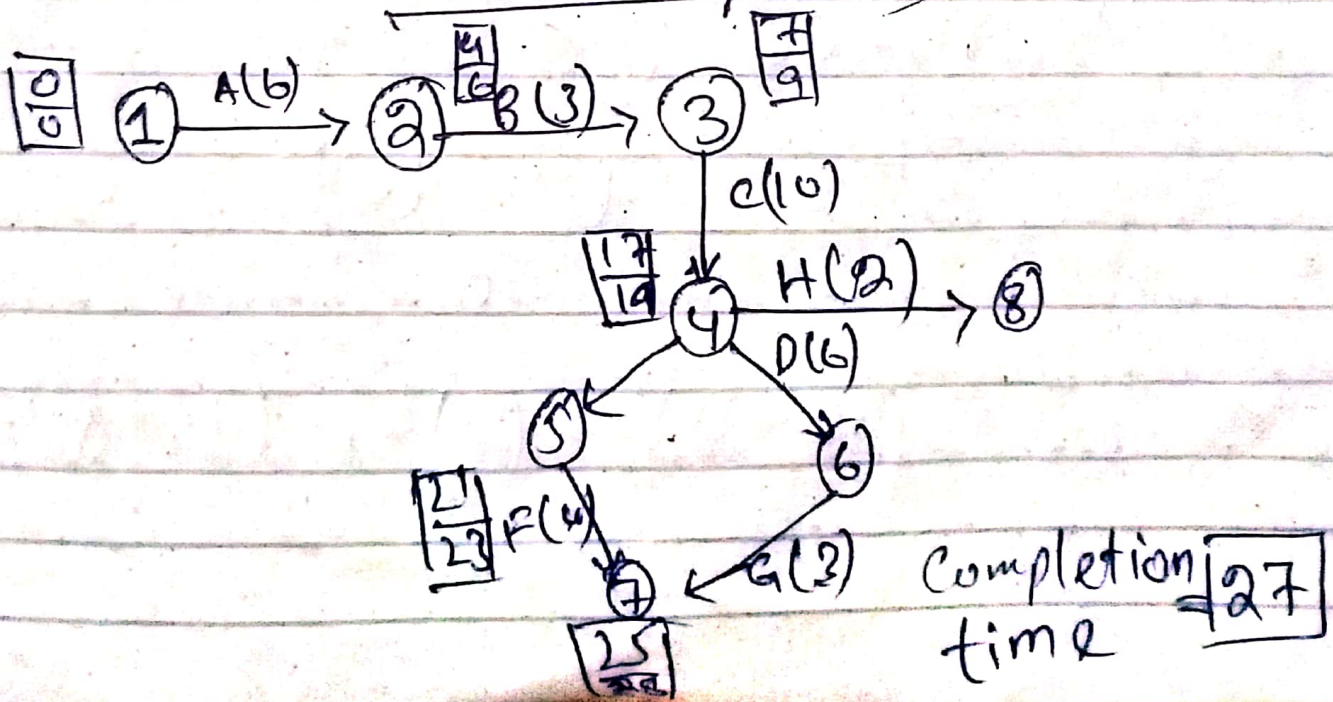 0 0
1
A(6)
2
4 6
B (3)
3
7 9
C(10)
17 19
4
H(12)
8
D(6)
5
6
21 23
F(4)
7
G(3)
25
Completion
time
= 27